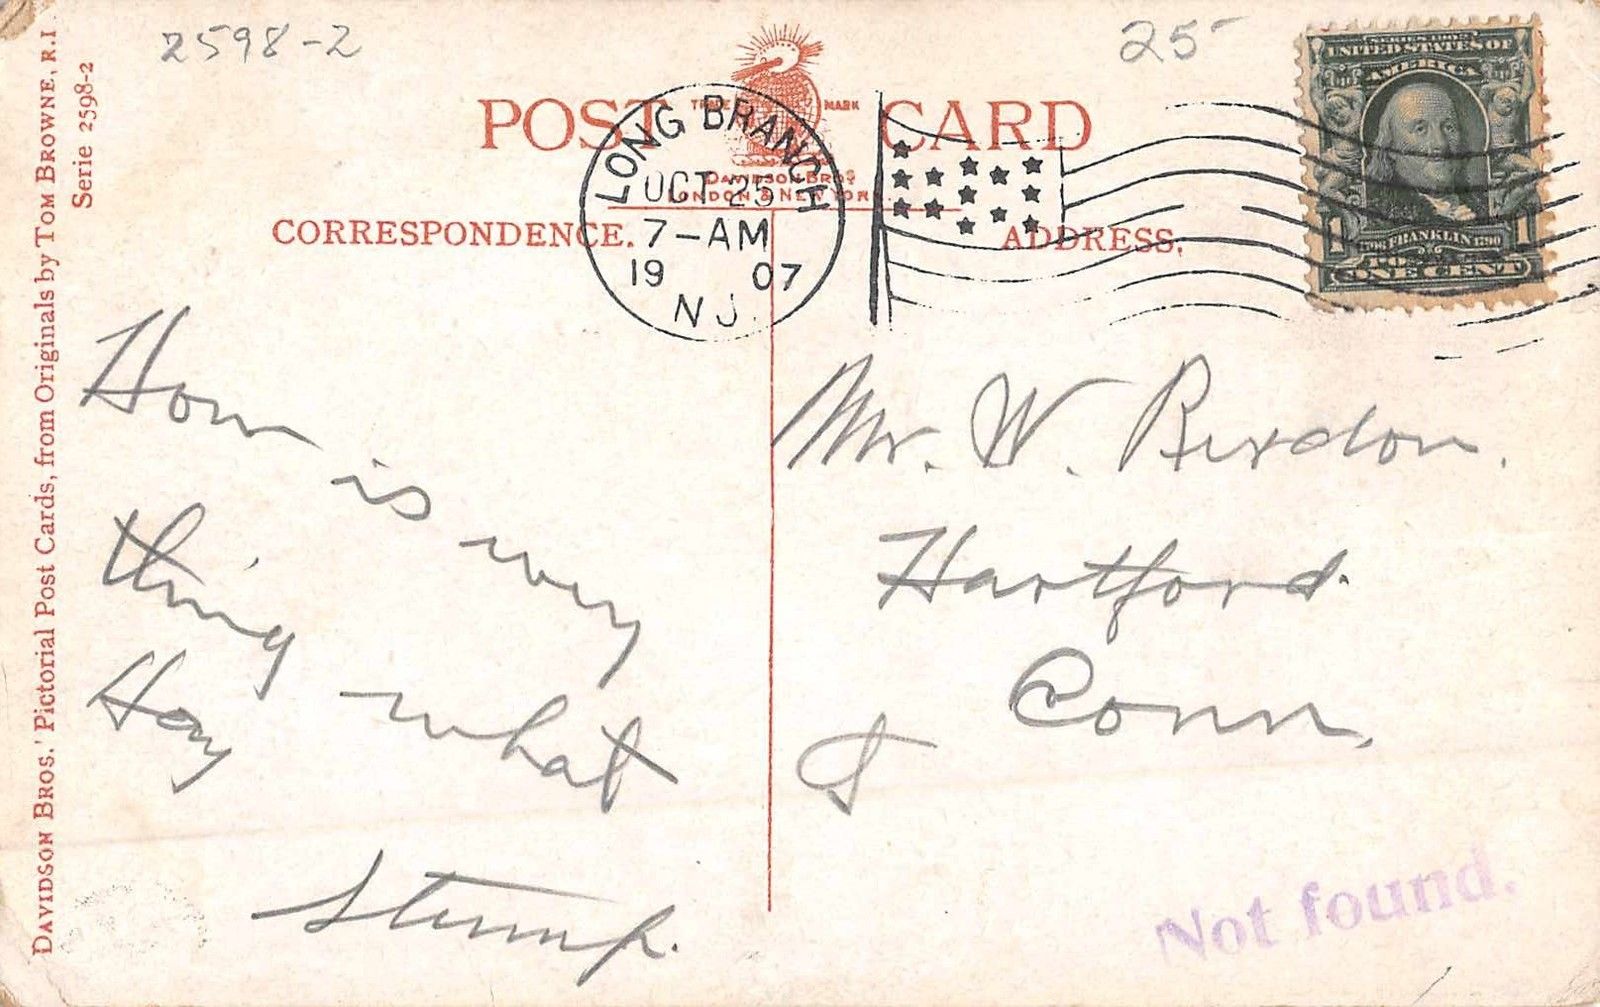 2598-2
25-
POST CARD
TRADE MARK
DAVIDSON BROS
LONDON & NEW YORK
LONG BRANCH
OCT 25
7-AM
1907
N.J.
SERIES 1902
UNITED STATES OF
AMERICA
1 FRANKLIN 1790 1
ONE CENT
CORRESPONDENCE.
ADDRESS.
How is every
thing what
Hay
Stump.
Mr. W.
Hartford.
Conn.
Not found.
DAVIDSON BROS.' Pictorial Post Cards, from Originals by TOM BROWNE, R.I.
Serie 2598-2